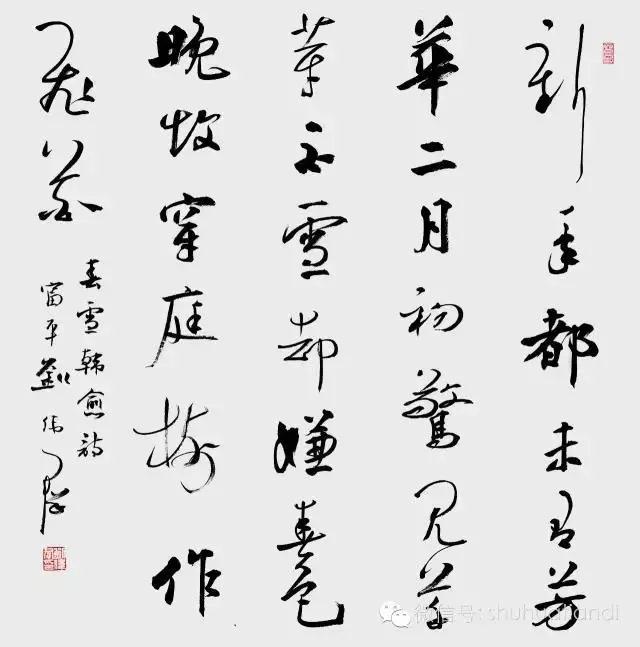 新年都未有芳
華二月初驚見草
芽白雪却嫌春色
晚故穿庭樹作
飛花
春雪韓愈詩
富平劉偉
微信号: shuhuatiandi